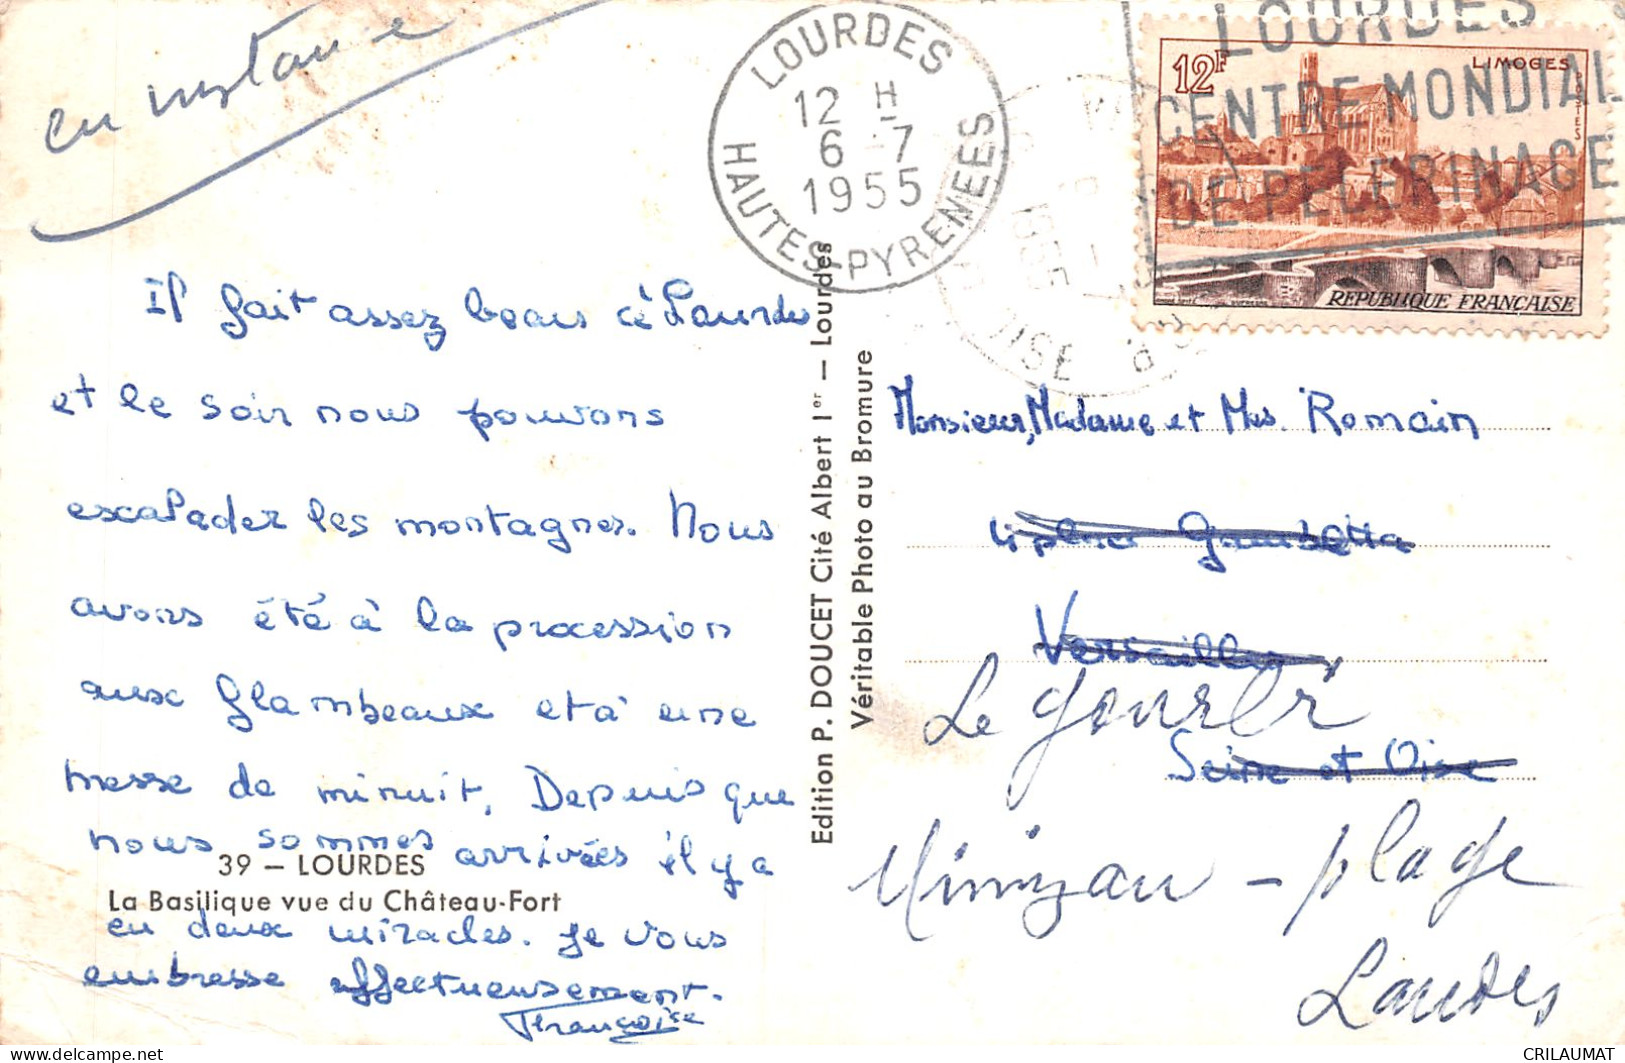 en instance
LOURDES
12 H
6 -7
1955
HAUTES-PYRENEES
LOURDES
CENTRE MONDIAL
DE PELERINAGE
12F
LIMOGES
REPUBLIQUE FRANÇAISE
1955
Il fait assez beau à Lourdes
et le soir nous pouvons
escalader les montagnes. Nous
avons été à la procession
aux flambeaux et à une
messe de minuit. Depuis que
nous sommes arrivées il y a
39 – LOURDES
La Basilique vue du Château-Fort
eu deux miracles. Je vous
embrasse affectueusement.
Françoise
Edition P. DOUCET Cité Albert Ier – Lourdes
Véritable Photo au Bromure
Monsieur, Madame et Mes. Romain
4 place Gambetta
Versailles
Le
Seine et Oise
Mimizan – plage
Landes
CRILAUMAT